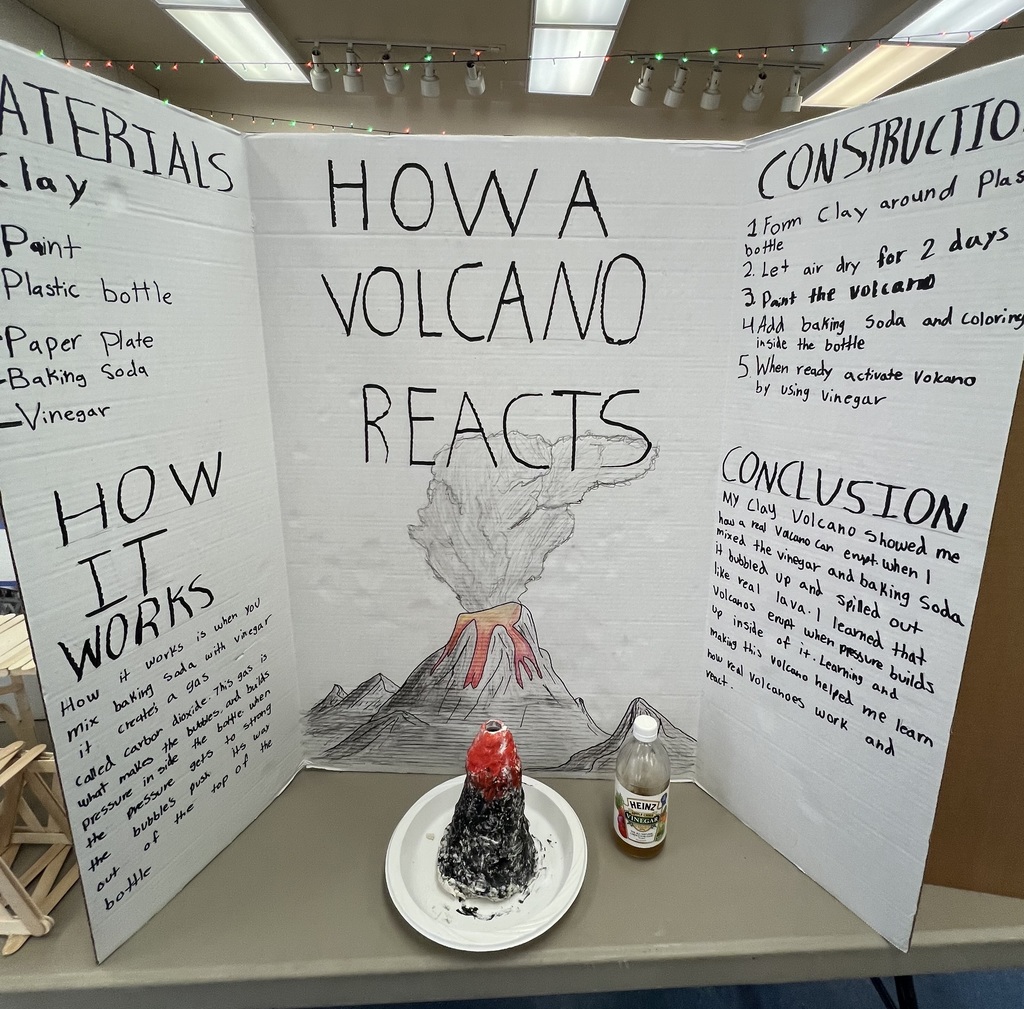 ATERIALS
Clay
Paint
Plastic bottle
-Paper Plate
-Baking Soda
-Vinegar
HOW
IT
WORKS
How it works is when you
mix baking soda with vinegar
it creates a gas
called carbon dioxide. This gas is
what makes the bubbles, and builds
pressure in side the bottle. when
the pressure gets to strong
the bubbles push its way
out of the top of the
bottle
HOW A
VOLCANO
REACTS
CONSTRUCTIO
1 Form Clay around Plas
bottle
2. Let air dry for 2 days
3. Paint the volcano
4 Add baking Soda and coloring
inside the bottle
5. When ready activate Volcano
by using vinegar
CONCLUSION
My Clay Volcano Showed me
how a real Volcano can erupt. when I
mixed the vinegar and baking Soda
it bubbled up and spilled out
like real lava. I learned that
volcanos erupt when pressure builds
up inside of it. Learning and
making this volcano helped me learn
how real volcanoes work and
react.
HEINZ
VINEGAR